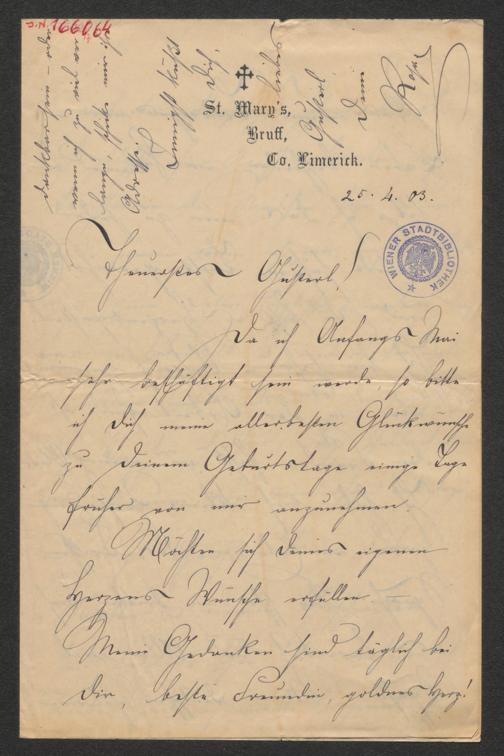 J.N. 166064
St. Mary's,
Bruff,
Co. Limerick.
25. 4. 03.
WIENER STADTBIBLIOTHEK
Theuerstes Gusterl!
Da ich Anfangs Mai
sehr beschäftigt sein werde, so bitte
ich Dich meine allerbesten Glückwünsche
zu Deinem Geburtstage einige Tage
früher von mir anzunehmen.
Möchten sich Deines eigenen
Herzens Wünsche erfüllen –
Meine Gedanken sind täglich bei
Dir, beste Freundin, goldnes Herz!
dankbar sein – oder
wenn ich zu viel ver-
lange, schicke mir ihre
Adresse.
Innigst küsst
Dich,
liebes
Gusterl
Deine
Rosa